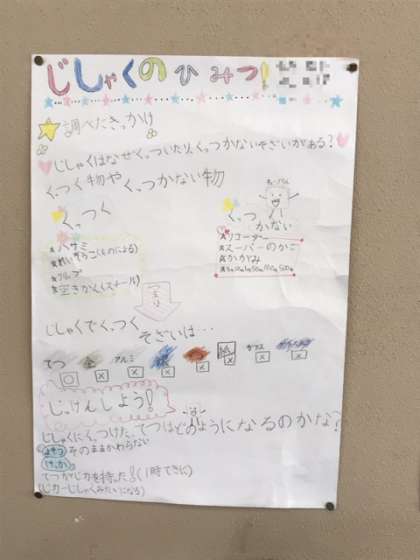 じしゃくのひみつ!
調べたきっかけ
じしゃくはなぜくっついたり、くっつかないそざいがある?
くっつく物やくっつかない物
くっつく
ハサミ
(ものによる)
クリップ
空きかん(スチール)
くっつかない
リコーダー
スーパーのかご
かがみ
つまり
じしゃくでくっつくそざいは…
てつ 金 アルミ 銀 銅 紙 ガラス
○ × × × × × × ×
じっけんしよう!
じしゃくにくっつけた、てつはどのようになるのかな?
よそう そのままかわらない
けっか
てつがじ力を持った!(1時てきに)
(じ力=じしゃくみたいになる)